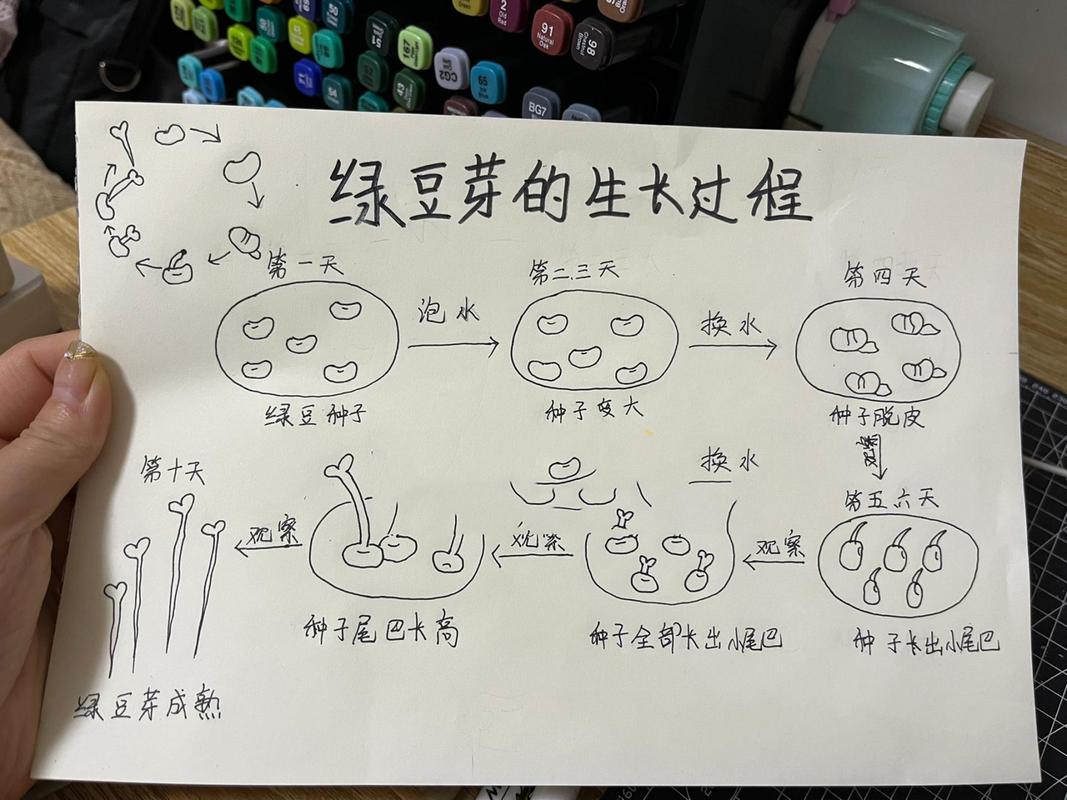 91
Natural
Oak
98
Chestnut
Brown
2
Old
Red
CG2
65
BG7
绿豆芽的生长过程
第一天
泡水
第二.三天
换水
第四天
绿豆种子
种子变大
种子脱皮
第十天
换水
第五六天
观察
观察
观察
种子尾巴长高
种子全部长出小尾巴
种子长出小尾巴
绿豆芽成熟